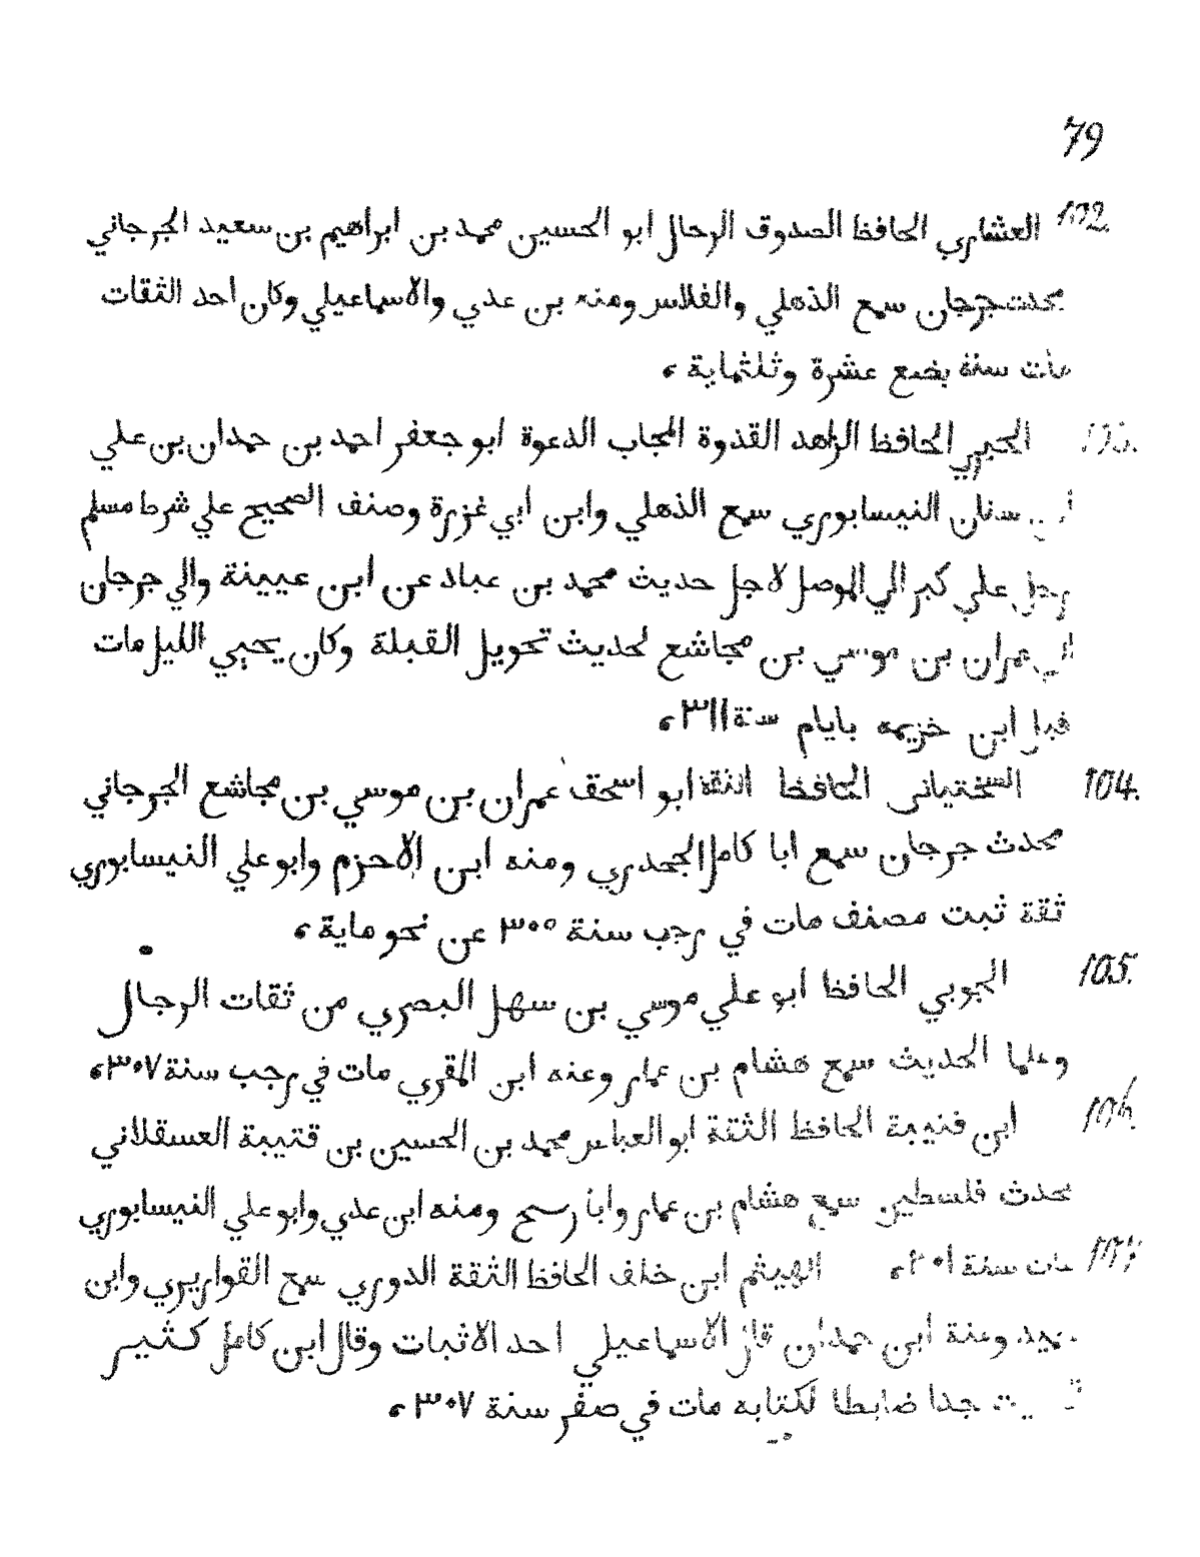 79
102. العشاري الحافظ الصدوق الرحال ابو الحسين محمد بن ابراهيم بن سعيد الجرجاني
محدث جرجان سمع الذهلي والفلاس ومنه بن عدي والاسماعيلي وكان احد الثقات
مات سنة بضع عشرة وثلثماية ،
الحيري الحافظ الزاهد القذوة المجاب الدعوة ابو جعفر احمد بن حمدان بن علي
سنان النيسابوري سمع الذهلي وابن ابي غزرة وصنف الصحيح علي شرط مسلم
رحل علي كبر الي الموصل لاجل حديث محمد بن عباد عن ابن عيينة والي جرجان
الي عمران بن موسي بن مجاشع لحديث تحويل القبلة وكان يحيي الليل مات
قبل ابن خزيمه بايام سنة ٣١١ ،
104. السختياني الحافظ الثقة ابو اسحق عمران بن موسي بن مجاشع الجرجاني
محدث جرجان سمع ابا كامل الجحدري ومنه ابن الاحزم وابو علي النيسابوري
ثقة ثبت مصنف مات في رجب سنة ٣٠٥ عن نحو ماية ،
105. الجوبي الحافظ ابو علي موسي بن سهل البصري من ثقات الرجال
وعلما الحديث سمع هشام بن عمار وعنه ابن المقري مات في رجب سنة ٣٠٧ ،
106. ابن قتيبة الحافظ الثقة ابو العباس محمد بن الحسين بن قتيبة العسقلاني
محدث فلسطين سمع هشام بن عمار وابا رمح ومنه ابن عدي وابو علي النيسابوري
مات سنة الهيثم ابن خلف الحافظ الثقة الدوري سمع القواريري وابن
وعنة ابن حمدان قال الاسماعيلي احد الاثبات وقال ابن كامل كثير
جدا ضابطا لكتابه مات في صفر سنة ٣٠٧ ،